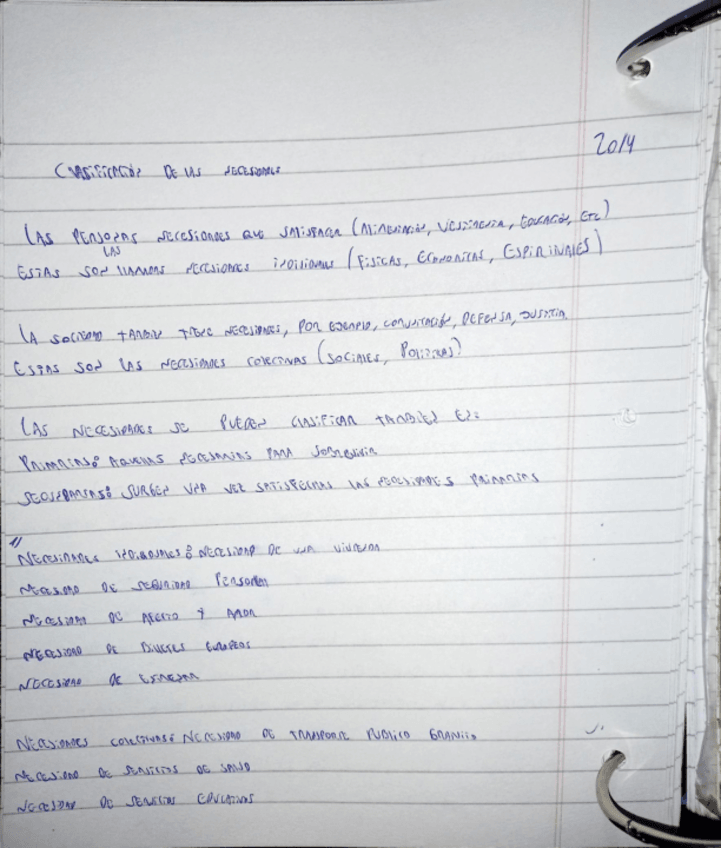 2014
CLASIFICACIÓN DE LAS NECESIDADES
LAS PERSONAS NECESIDADES QUE SATISFACER (ALIMENTACIÓN, VESTIMENTA, EDUCACIÓN, ETC)
ESTAS SON LAS LLAMADAS NECESIDADES INDIVIDUALES (FÍSICAS, ECONOMICAS, ESPIRITUALES)
LA SOCIEDAD TAMBIEN TIENE NECESIDADES, POR EJEMPLO, COMUNICACIÓN, DEFENSA, JUSTICIA
ESTAS SON LAS NECESIDADES COLECTIVAS (SOCIALES, POLITICAS)
LAS NECESIDADES SE PUEDEN CLASIFICAR TAMBIEN EN:
PRIMARIAS: AQUELLAS NECESARIAS PARA SOBREVIVIR
SECUNDARIAS: SURGEN UNA VEZ SATISFECHAS LAS NECESIDADES PRIMARIAS
NECESIDADES INDIVIDUALES: NECESIDAD DE UNA VIVIENDA
NECESIDAD DE SEGURIDAD PERSONAL
NECESIDAD DE AFECTO Y AMOR
NECESIDAD DE
NECESIDAD DE
NECESIDADES COLECTIVAS: NECESIDAD DE TRANSPORTE PUBLICO GRATUITO
NECESIDAD DE SERVICIOS DE SALUD
NECESIDAD DE SERVICIOS EDUCATIVOS